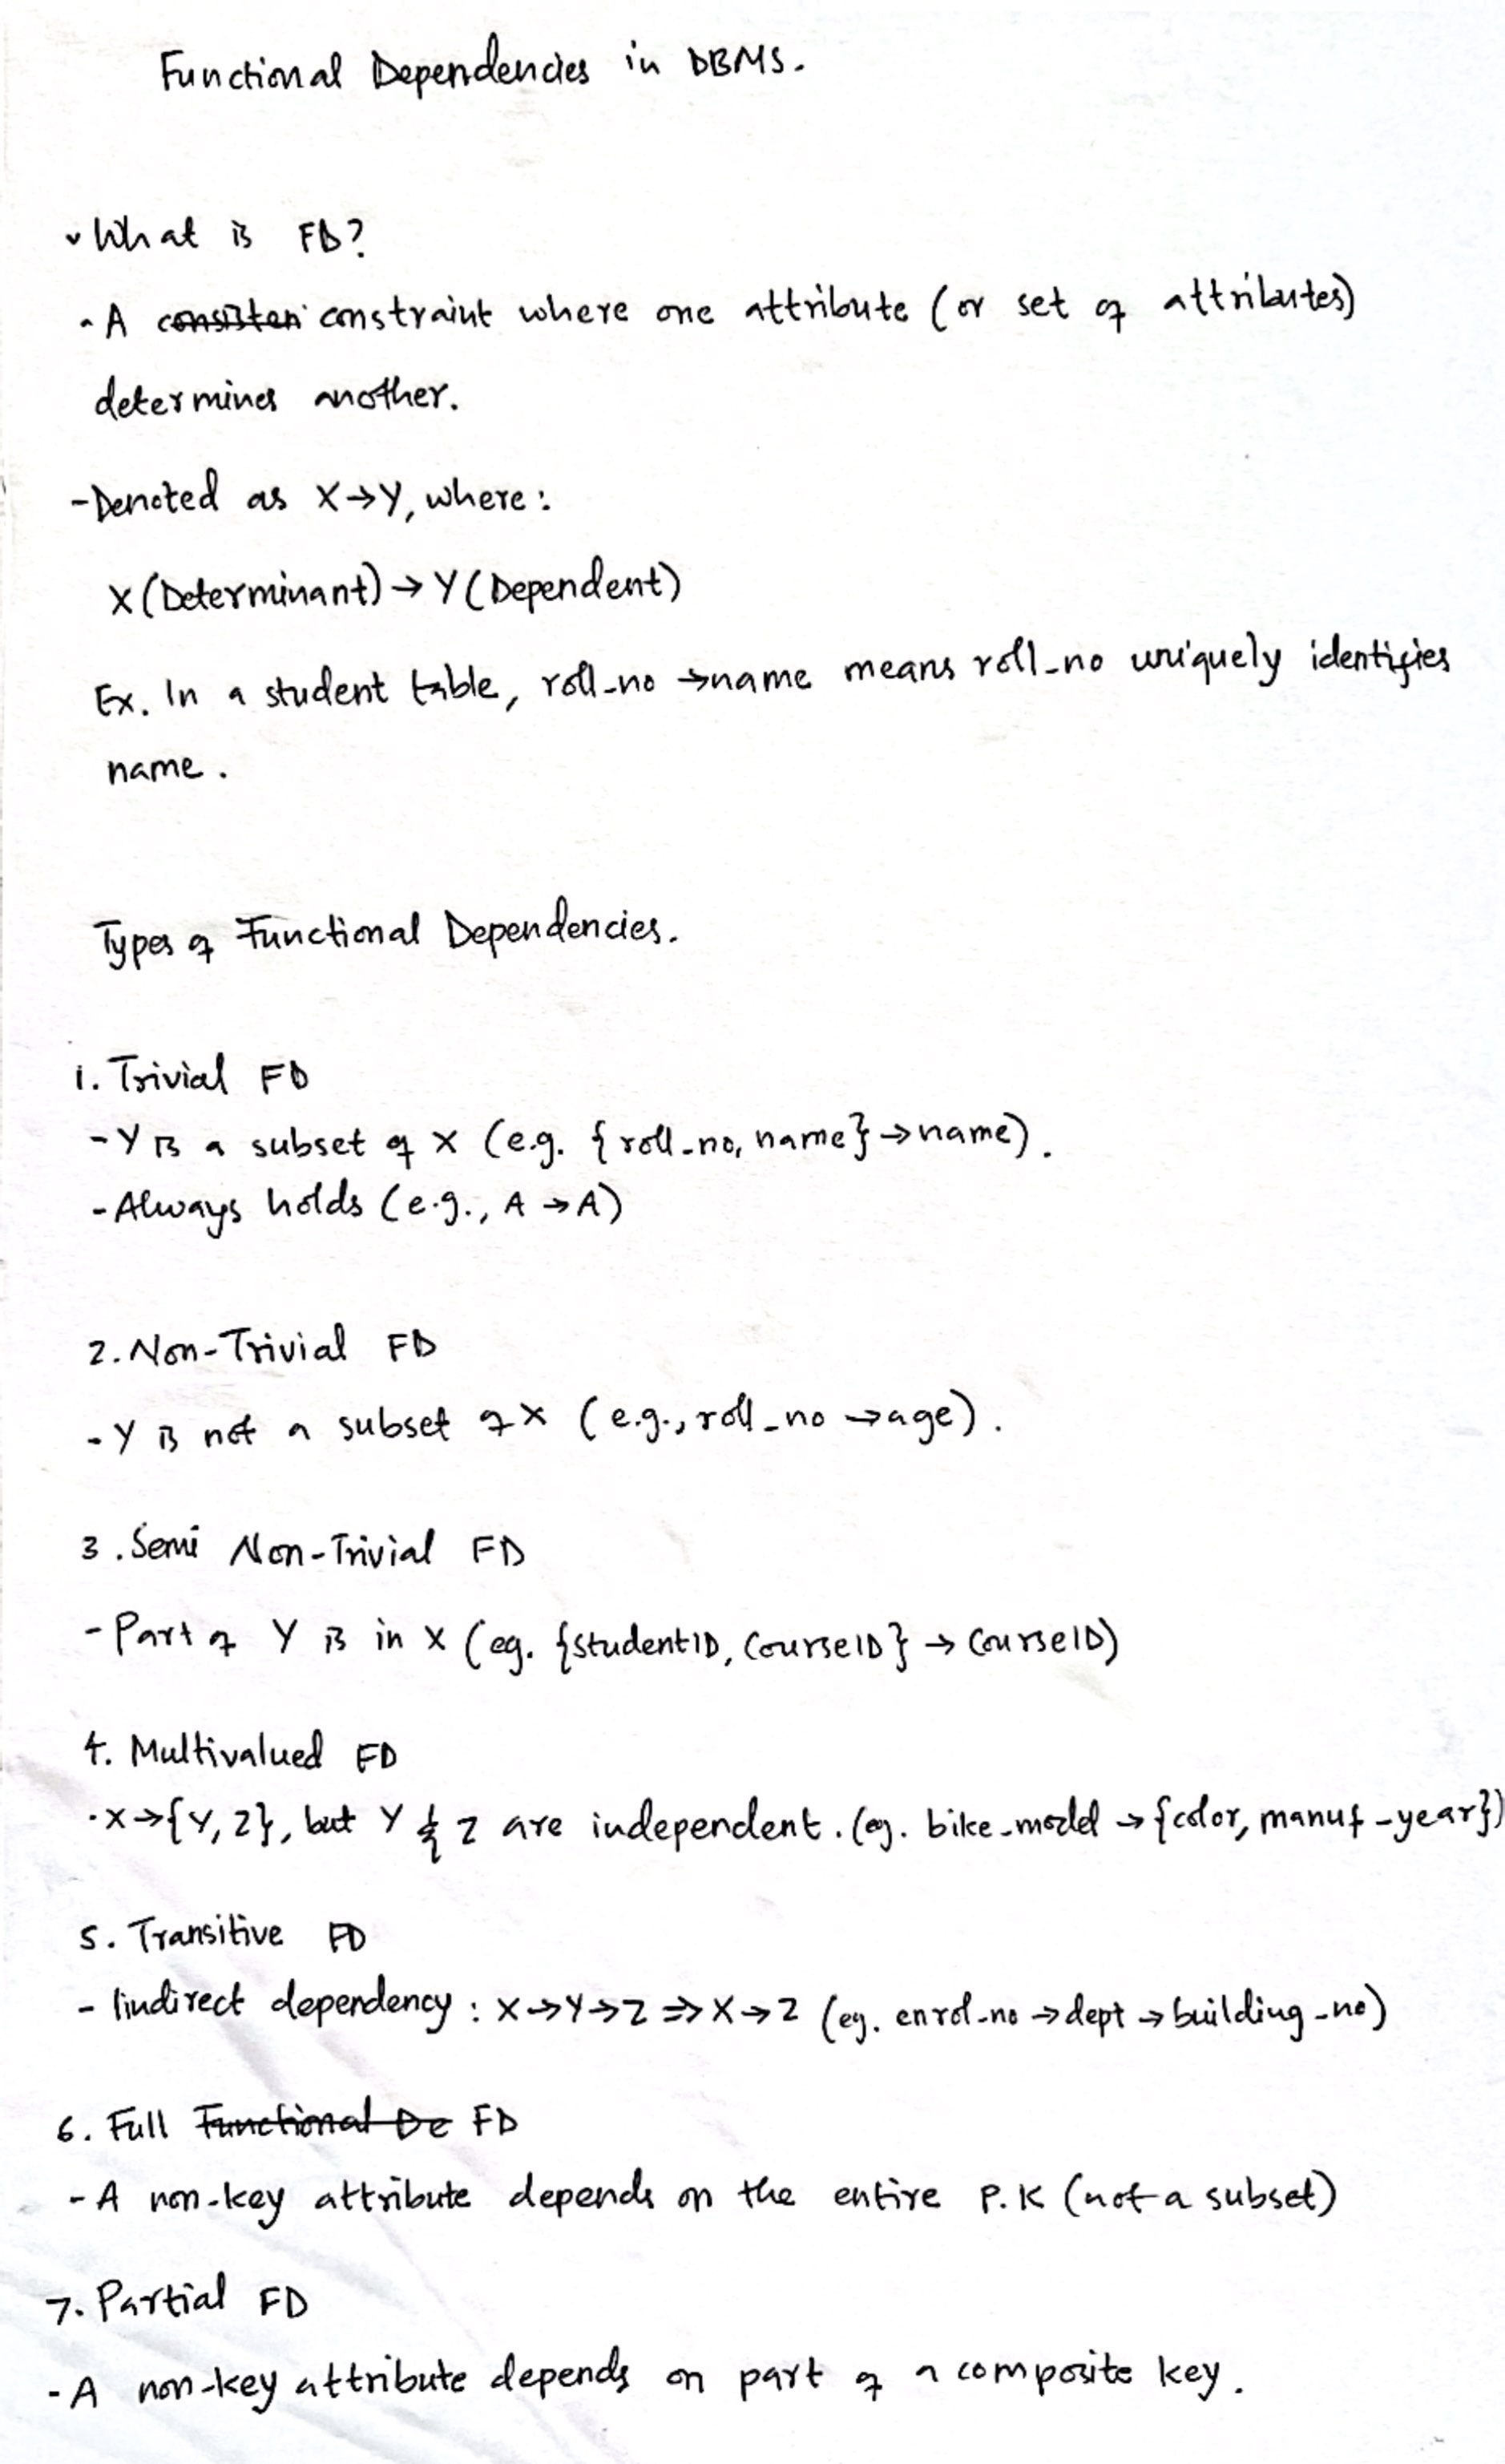 Functional Dependencies in DBMS.
What is FD?
- A consisten constraint where one attribute (or set of attributes)
determines another.
- Denoted as X→Y, where:
X (Determinant) → Y (Dependent)
Ex. In a student table, roll_no →name means roll_no uniquely identifies
name.
Types of Functional Dependencies.
1. Trivial FD
- Y is a subset of X (e.g. {roll_no, name} →name).
- Always holds (e.g., A →A)
2. Non-Trivial FD
- Y is not a subset of X (e.g., roll_no →age).
3. Semi Non-Trivial FD
- Part of Y is in X (eg. {studentID, CourseID} → CourseID)
4. Multivalued FD
· X→{Y, Z}, but Y & Z are independent. (eg. bike_model → {color, manuf_year})
5. Transitive FD
- Iindirect dependency : X→Y→Z ⇒ X→Z (eg. enrol_no →dept → building_no)
6. Full Functional De FD
- A non-key attribute depends on the entire P.K (not a subset)
7. Partial FD
- A non-key attribute depends on part of a composite key.